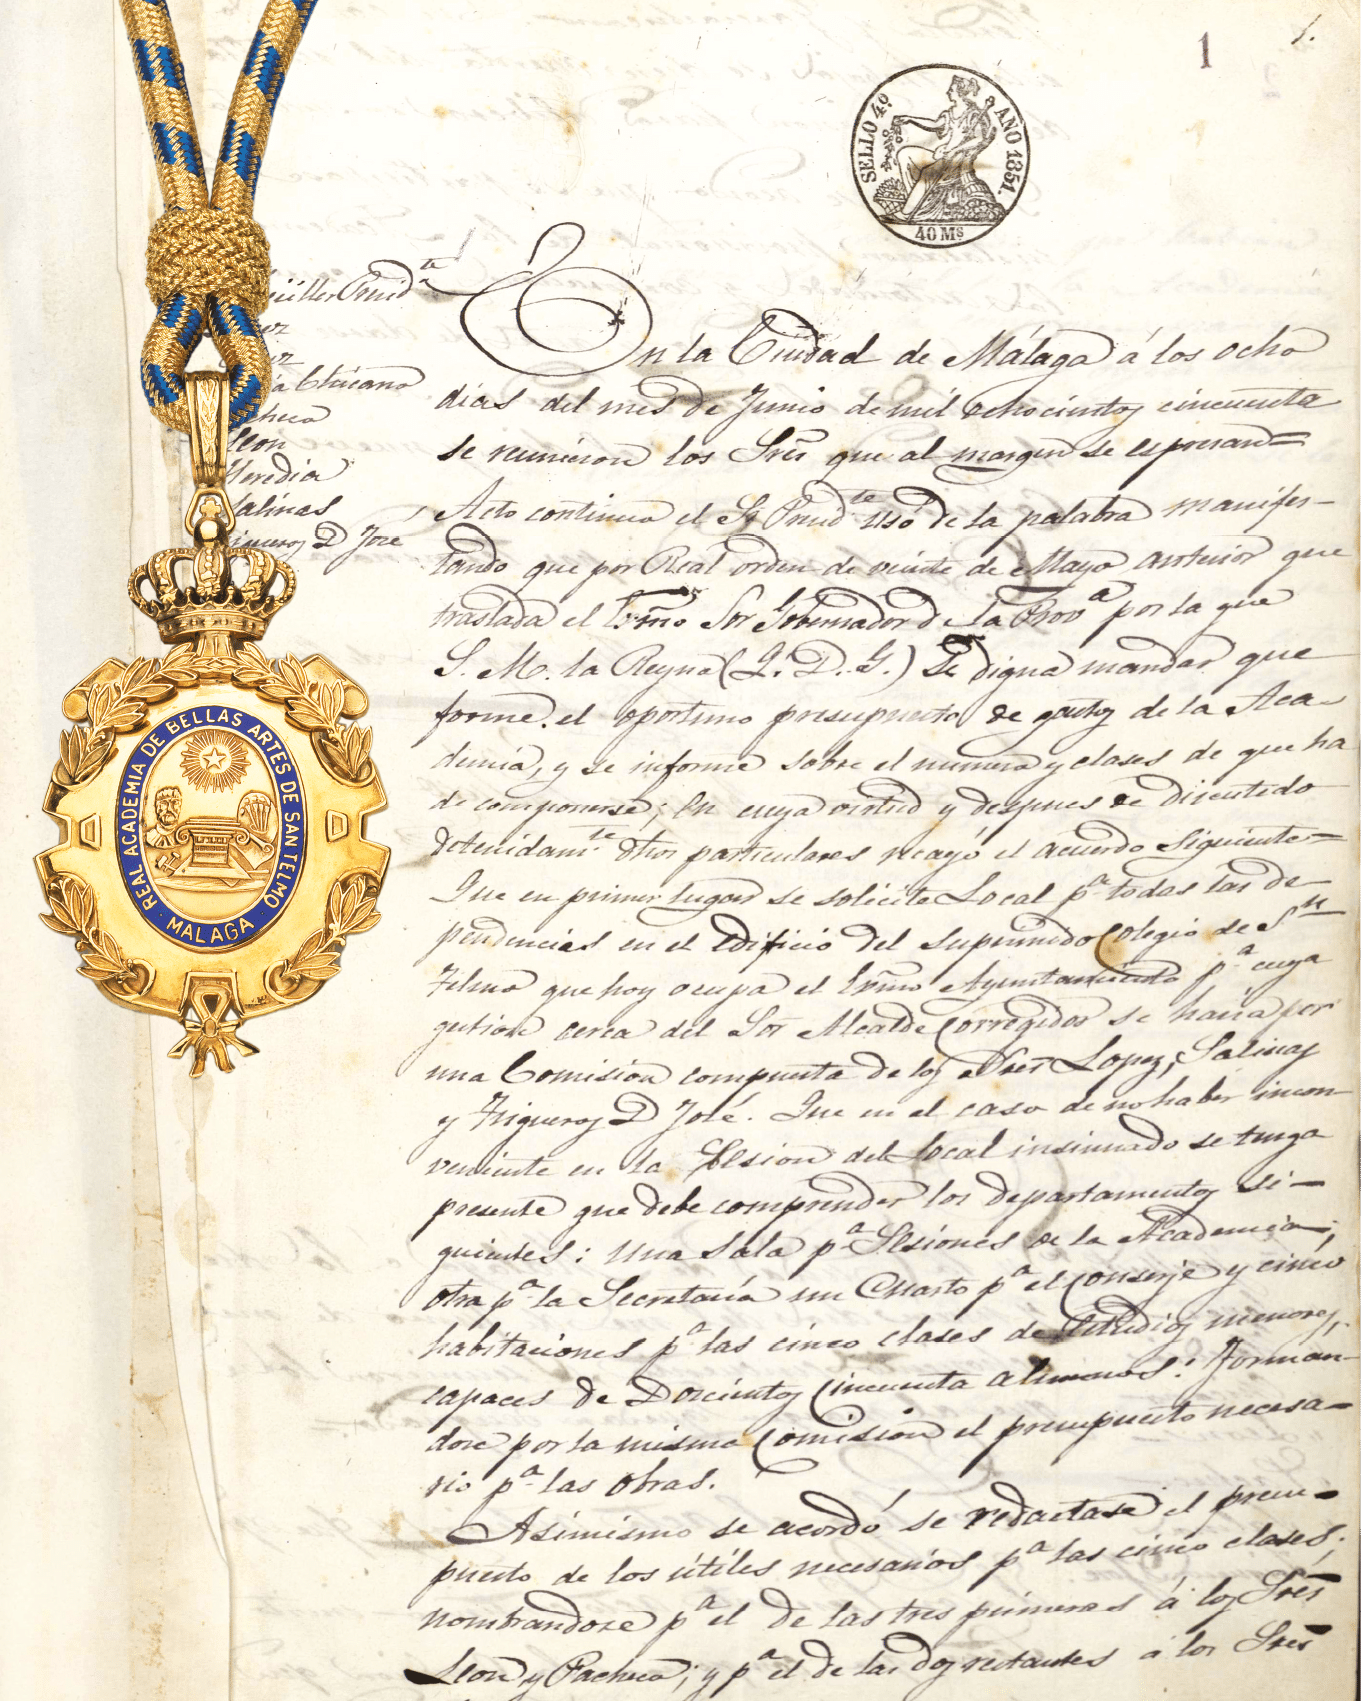 1
1.
SELLO 4º. AÑO 1851.
40 Ms
REAL ACADEMIA DE BELLAS ARTES DE SAN TELMO
MALAGA
Chicano
checo
Leon
Heredia
Salinas
D José
En la Ciudad de Málaga á los ocho
dias del mes de Junio de mil ochocientos cincuenta
se reunieron los Sres que al margen se espresan=
Acto continuo el Sr Presidte usó de la palabra manifes-
tando que por Real orden de veinte de Mayo anterior que
traslada el Exmo Sor Gobernador de la Prova por la que
S. M. la Reyna (Q. D. G.) Se digna mandar que
forme el oportuno presupuesto de gastos de la Aca-
demia, y se informe sobre el numero y clases de que ha
de componerse; En cuya virtud y despues de discutido
detenidamte dhos particulares recayó el acuerdo siguiente=
Que en primer lugar se solicite Local pa todas las de-
pendencias en el Edificio del suprimido Colegio de Sn
Telmo que hoy ocupa el Exmo Ayuntamiento pa cuya
gestion cerca del Sor Alcalde Corregidor se haria por
una Comision compuesta de los Sres Lopez, Salinas
y Trigueros D José. Que en el caso de no haber incon-
veniente en la Cesion del Local insinuado se tenga
presente que debe comprender los departamentos si-
guientes: una sala pa Sesiones de la Academia;
otra pa la Secretaría un Cuarto pa el Conserje y cinco
habitaciones pa las cinco clases de Estudios menores,
capaces de Doscientos Cincuenta alumnos: Forman-
dose por la misma Comision el presupuesto necesa-
rio pa las obras.
Asimismo se acordó se redactase el presu-
puesto de los útiles necesarios pa las cinco clases;
nombrandose pa el de las tres primeras á los Sres
Leon y Pacheco; y pa el de las dos restantes á los Sres